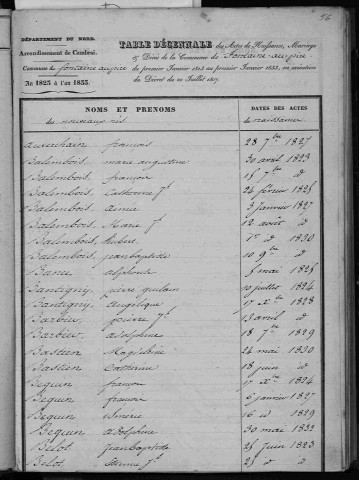 56
DÉPARTEMENT DU NORD.
Arrondissement de Cambrai.
Commune de fontaine au pire
An 1823 à l'an 1833.
TABLE DÉCENNALE des Actes de Naissance, Mariage
& Décès de la Commune de Fontaine au pire
du premier Janvier 1823 au premier Janvier 1833, en exécution
du Décret du 20 Juillet 1807.
NOMS ET PRENOMS
des nouveaux nés
DATES DES ACTES
de naissance
françois 28 7bre 1827
Balembois marie augustine 30 avril 1823
Balembois françois 15 7bre d
Balembois Catherine jh 24 février 1825
Balembois aimée 3 janvier 1827
Balembois Marie jh 12 août d
Balembois hubert 1er d 1830
Balembois jean baptiste 10 9bre d
alphonse 5 mai 1825
Bantigny pierre ghislain 10 juillet 1824
Bantigny angélique 17 Xbre 1828
Barbier jh 13 avril d
Barbier adolphine 18 7bre 1829
Bastien Magdeleine 24 mai 1830
Bastien Catherine 18 juin d
Bequin françois 17 Xbre 1824
Bequin françois 6 janvier 1827
Bequin 16 d 1829
Bequin adolphine 30 mai 1832
Belot jean baptiste 25 juin 1823
Belot etienne jh 25 d d